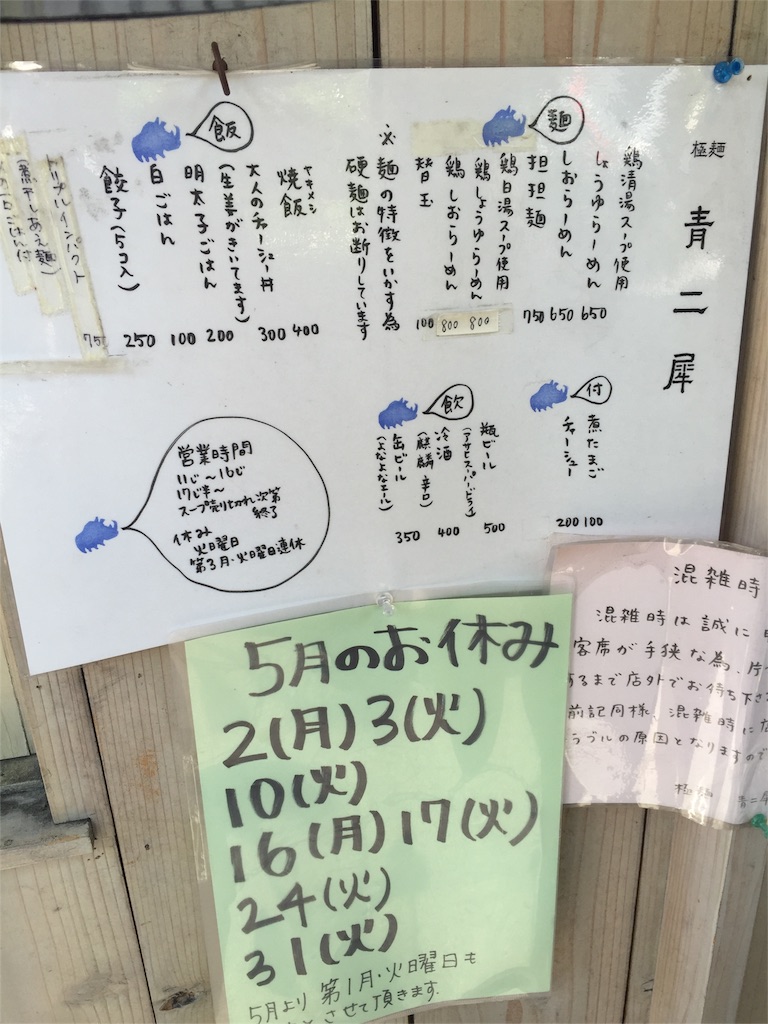 極麺
青二犀
麺
鶏清湯スープ使用
しょうゆらーめん 650
しおらーめん 650
担担麺 750
鶏白湯スープ使用
鶏しょうゆらーめん 800
鶏しおらーめん 800
替玉 100
※麺の特徴をいかす為
硬麺はお断りしています
飯
ヤキメシ
焼飯 400
大人のチャーシュー丼 300
(生姜がきいてます)
明太子ごはん 200
白ごはん 100
餃子(5コ入) 250
トリプルインパクト 75
(煮干しあえ麺)
ごはん付
付
煮たまご 100
チャーシュー 200
飲
瓶ビール 500
(アサヒスーパードライ)
冷酒 400
(麒麟辛口)
缶ビール 350
(よなよなエール)
営業時間
11じ〜16じ
17じ半〜
スープ売り切れ次第
終了
休み
火曜日
第3月・火曜日連休
5月のお休み
2(月)3(火)
10(火)
16(月)17(火)
24(火)
31(火)
5月より 第1月・火曜日も
させて頂きます.
混雑時
混雑時は誠に
客席が手狭な為、片
するまで店外でお待ち下さ
前記同様、混雑時に店
ラブルの原因となりますので
極麺 青二犀